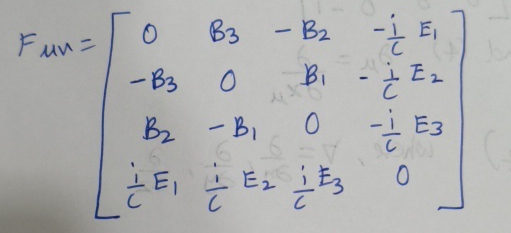 Fμν = [ 0 B3 -B2 -i/c E1
-B3 0 B1 -i/c E2
B2 -B1 0 -i/c E3
i/c E1 i/c E2 i/c E3 0 ]